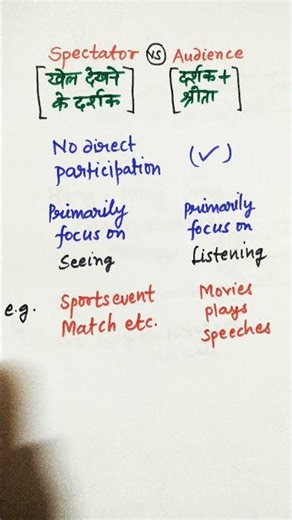 Spectator vs Audience
[खेल देखने के दर्शक] [दर्शक + श्रीता]
No direct participation (✓)
Primarily focus on Seeing
Primarily focus on Listening
e.g. Sports event Match etc.
Movies plays speeches